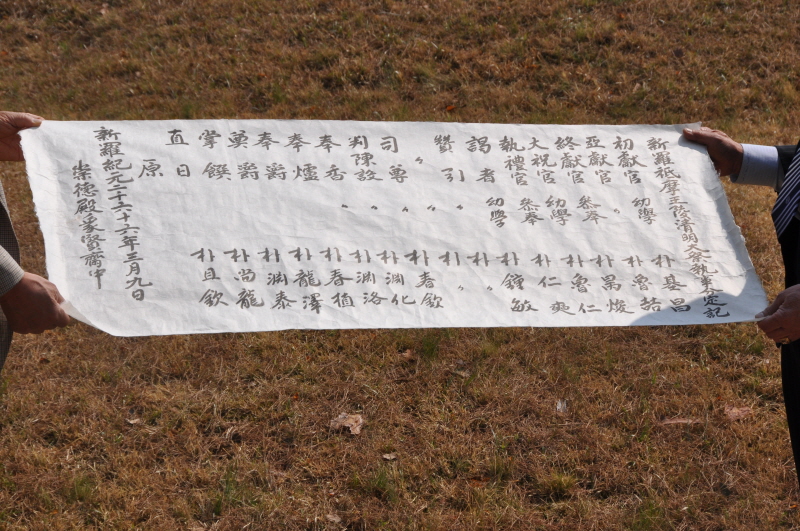 新羅祗摩王陵清明大祭執事分定記
初獻官 幼學 朴基昌
〃 〃 朴魯喆
亞獻官 參奉 朴昺燦
終獻官 幼學 朴魯仁
大祝官 參奉 朴仁奭
執禮官 幼學 朴鍾敏
謁者 〃 朴〃
贊引 〃 朴
〃 〃 朴春欽
司尊 朴淵化
判陳設 〃 朴淵洛
奉香 朴春植
奉爐 朴龍澤
奉爵 朴淵泰
奠爵 朴尚龍
掌饌 朴且欽
直日
原
新羅紀元二千二十六年三月九日
崇德殿象賢齋中